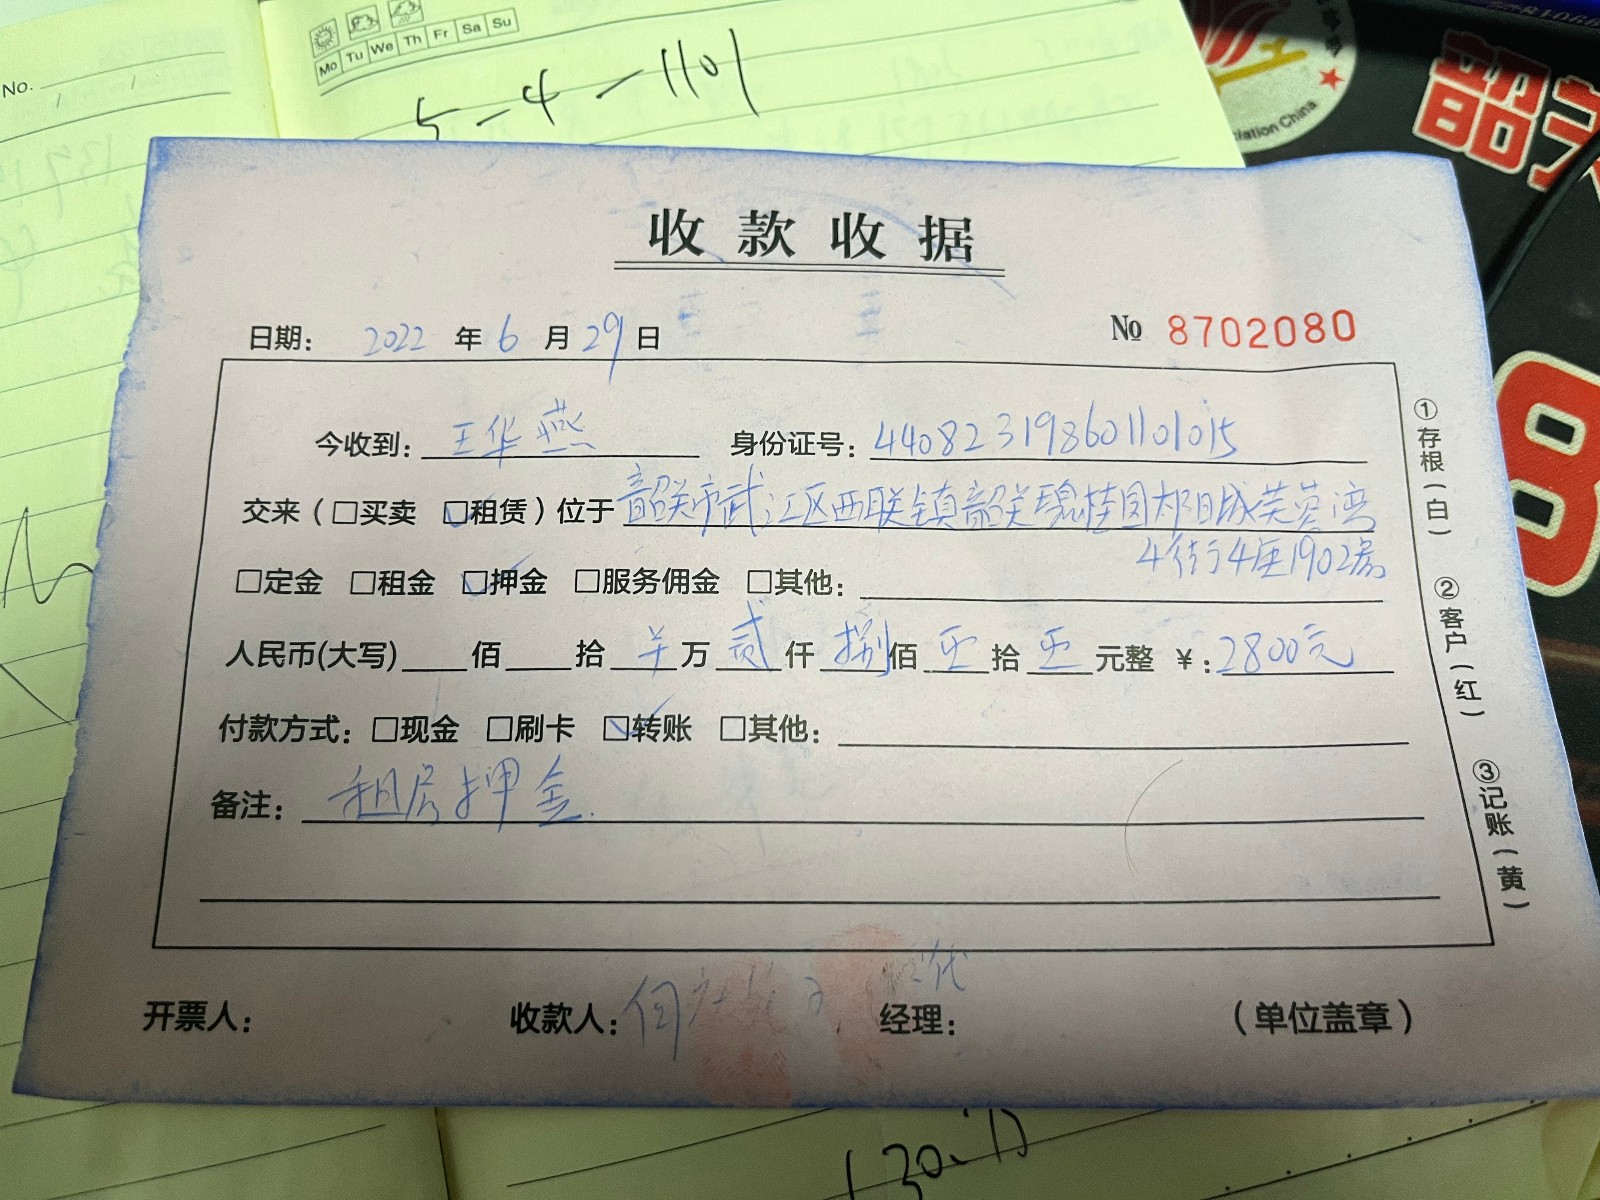 No.
Mo Tu We Th Fr Sa Su
5-4-1101
iation China
韶关
8
收款收据
日期： 2022 年 6 月 29 日
№ 8702080
今收到： 王华燕 身份证号： 440823198601101015
交来（□买卖 ☑租赁）位于 韶关市武江区西联镇韶关碧桂园太阳城芙蓉湾
4街4座1902房
□定金 □租金 ☑押金 □服务佣金 □其他：
人民币(大写) 佰 拾 万 贰 仟 捌 佰 拾 元整 ¥：2800元
付款方式：□现金 □刷卡 ☑转账 □其他：
备注： 租房押金.
开票人： 收款人： 何 代 经理： （单位盖章）
①存根（白）
②客户（红）
③记账（黄）